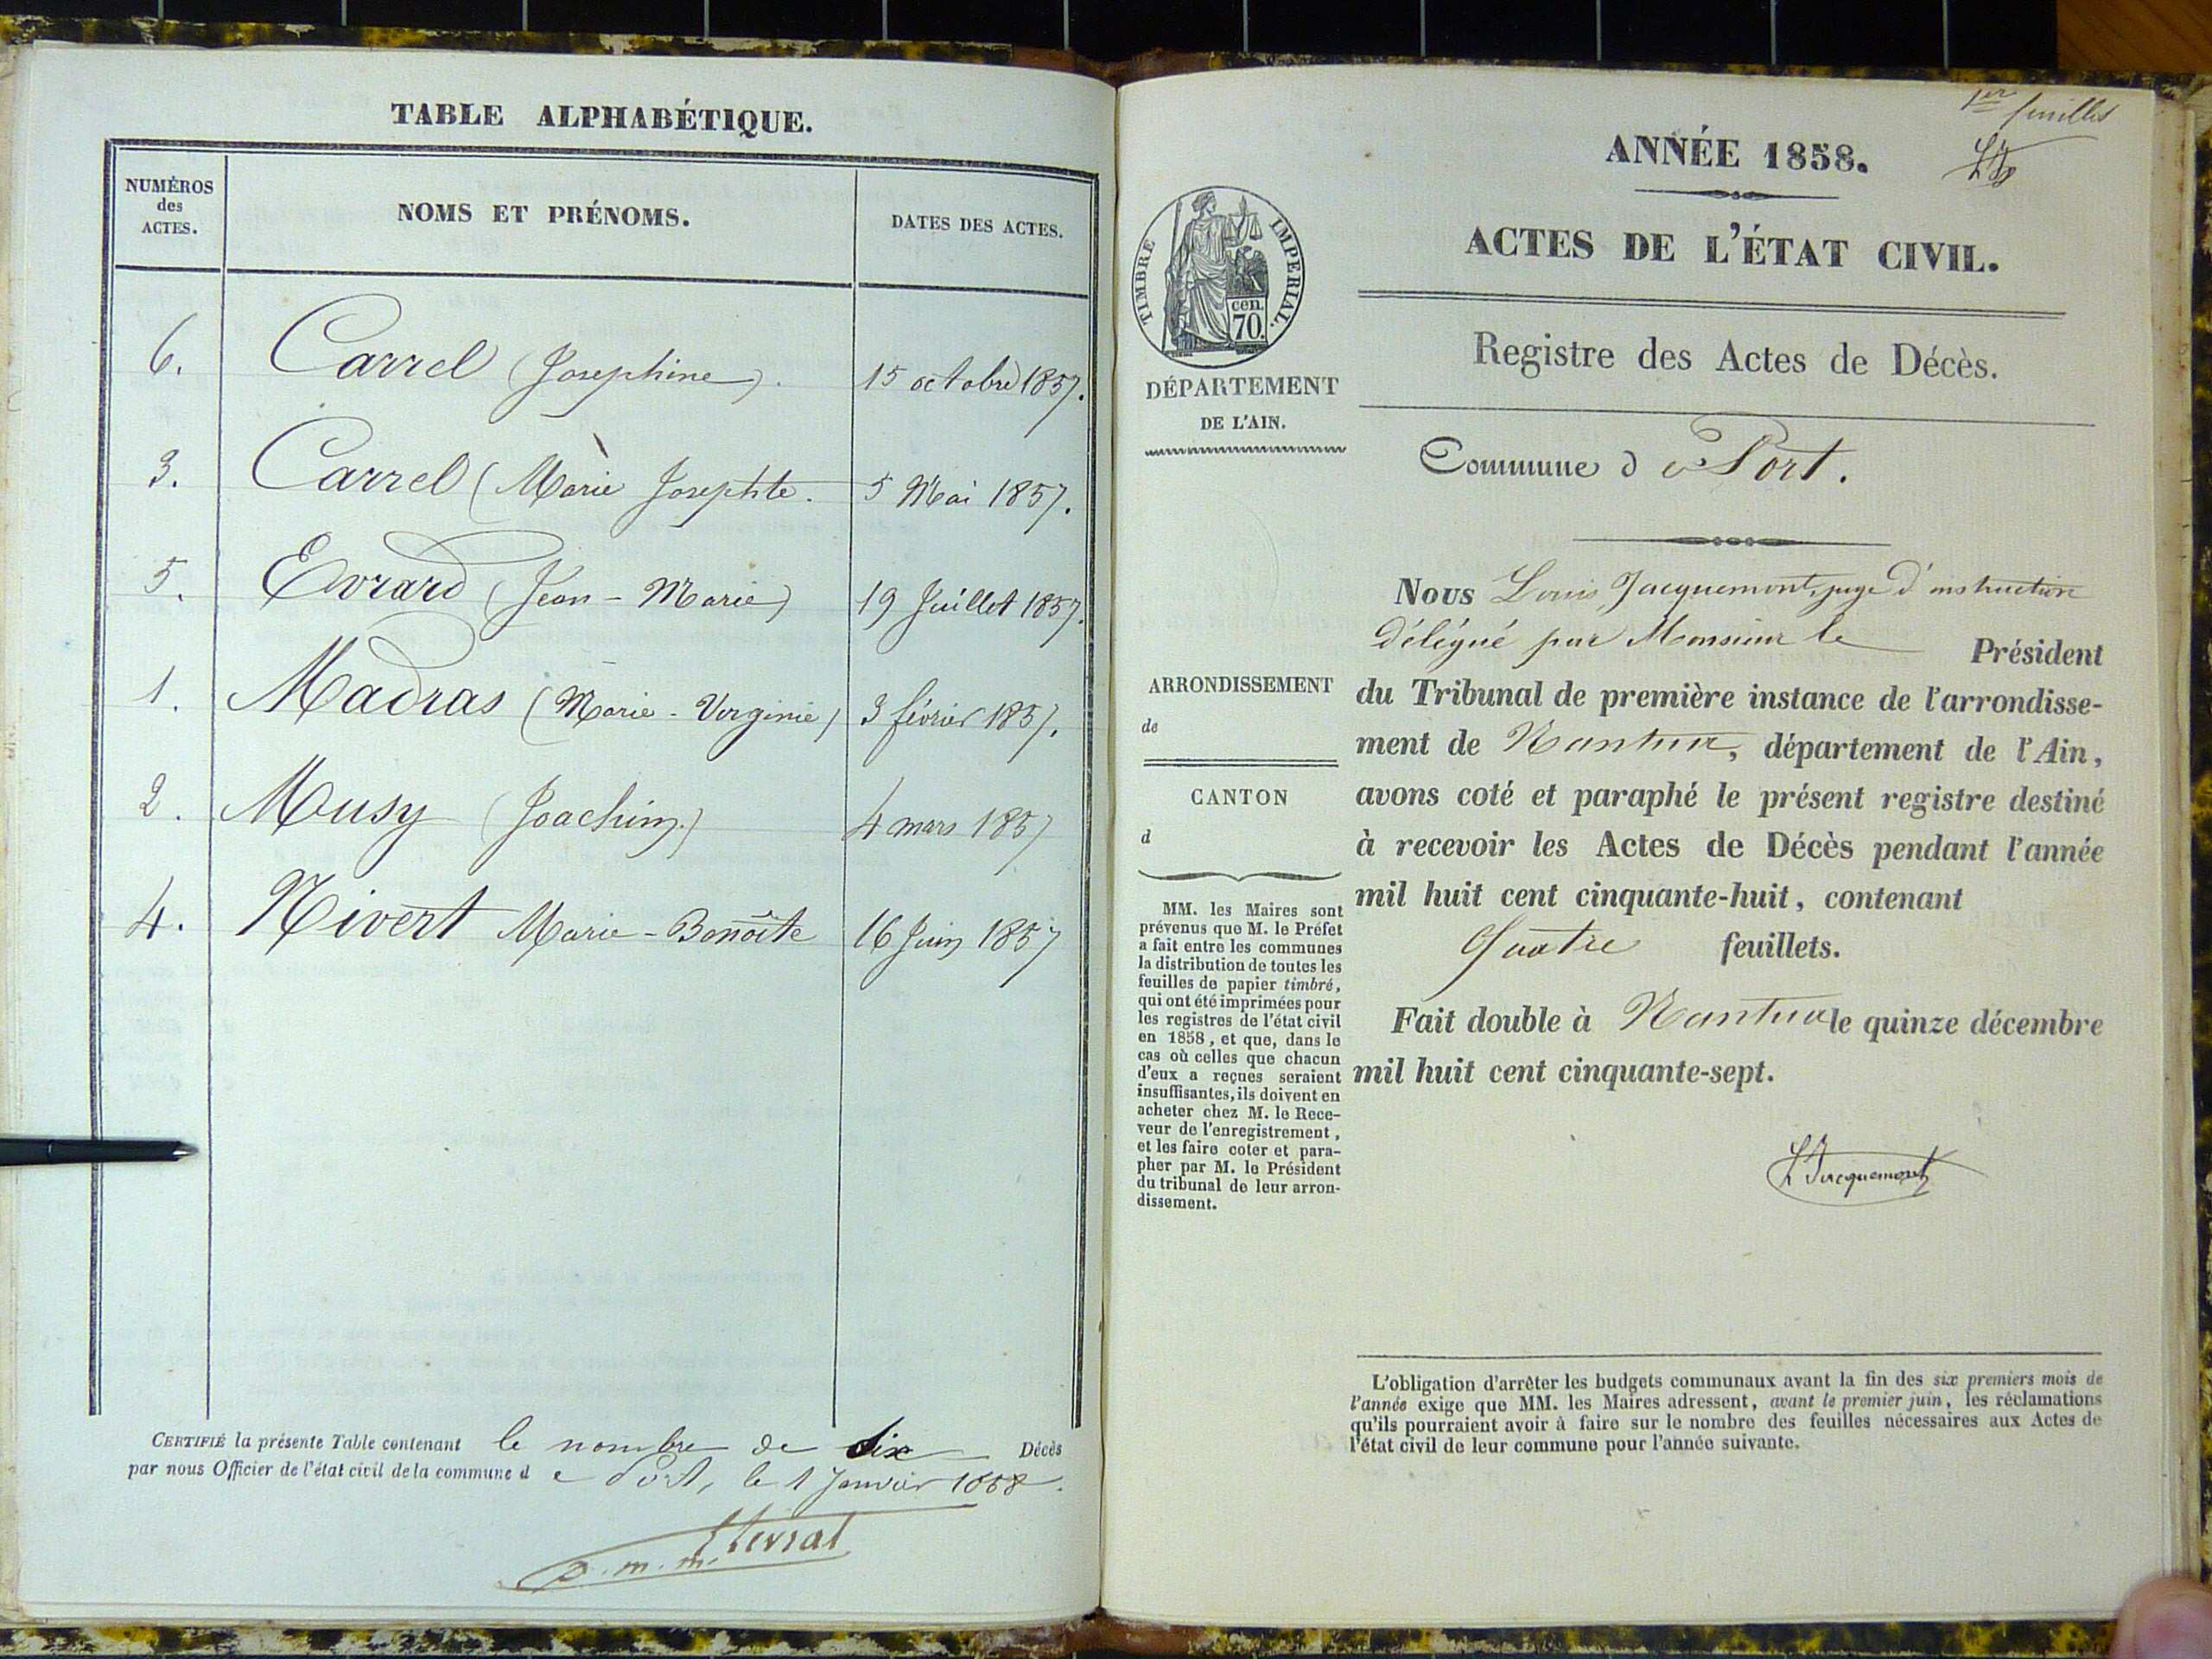 TABLE ALPHABÉTIQUE.
NUMÉROS
des
ACTES.
NOMS ET PRÉNOMS.
DATES DES ACTES.
6. Carrel (Josephine). 15 octobre 1857.
3. Carrel (Marie Josephte. 5 Mai 1857.
5. Evrard (Jean-Marie) 19 Juillet 1857.
1. Madras (Marie-Virginie) 3 février 1857.
2. Musy (Joachim) 4 mars 1857
4. Nivert Marie-Benoîte 16 Juin 1857
CERTIFIÉ la présente Table contenant le nombre de six Décès
par nous Officier de l'état civil de la commune d e Port, le 1 Janvier 1858.
p. m. m.
1er feuillet
ANNÉE 1858.
ACTES DE L'ÉTAT CIVIL.
Registre des Actes de Décès.
Commune d e Port.
TIMBRE IMPERIAL.
cen.
70.
DÉPARTEMENT
DE L'AIN.
ARRONDISSEMENT
de
CANTON
d
MM. les Maires sont
prévenus que M. le Préfet
a fait entre les communes
la distribution de toutes les
feuilles de papier timbré,
qui ont été imprimées pour
les registres de l'état civil
en 1858, et que, dans le
cas où celles que chacun
d'eux a reçues seraient
insuffisantes, ils doivent en
acheter chez M. le Rece-
veur de l'enregistrement,
et les faire coter et para-
pher par M. le Président
du tribunal de leur arron-
dissement.
Nous Louis Jacquemont, juge d'instruction
délégué par Monsieur le Président
du Tribunal de première instance de l'arrondisse-
ment de Nantua, département de l'Ain,
avons coté et paraphé le présent registre destiné
à recevoir les Actes de Décès pendant l'année
mil huit cent cinquante-huit, contenant
Quatre feuillets.
Fait double à Nantua le quinze décembre
mil huit cent cinquante-sept.
L Jacquemont
L'obligation d'arrêter les budgets communaux avant la fin des six premiers mois de
l'année exige que MM. les Maires adressent, avant le premier juin, les réclamations
qu'ils pourraient avoir à faire sur le nombre des feuilles nécessaires aux Actes de
l'état civil de leur commune pour l'année suivante.